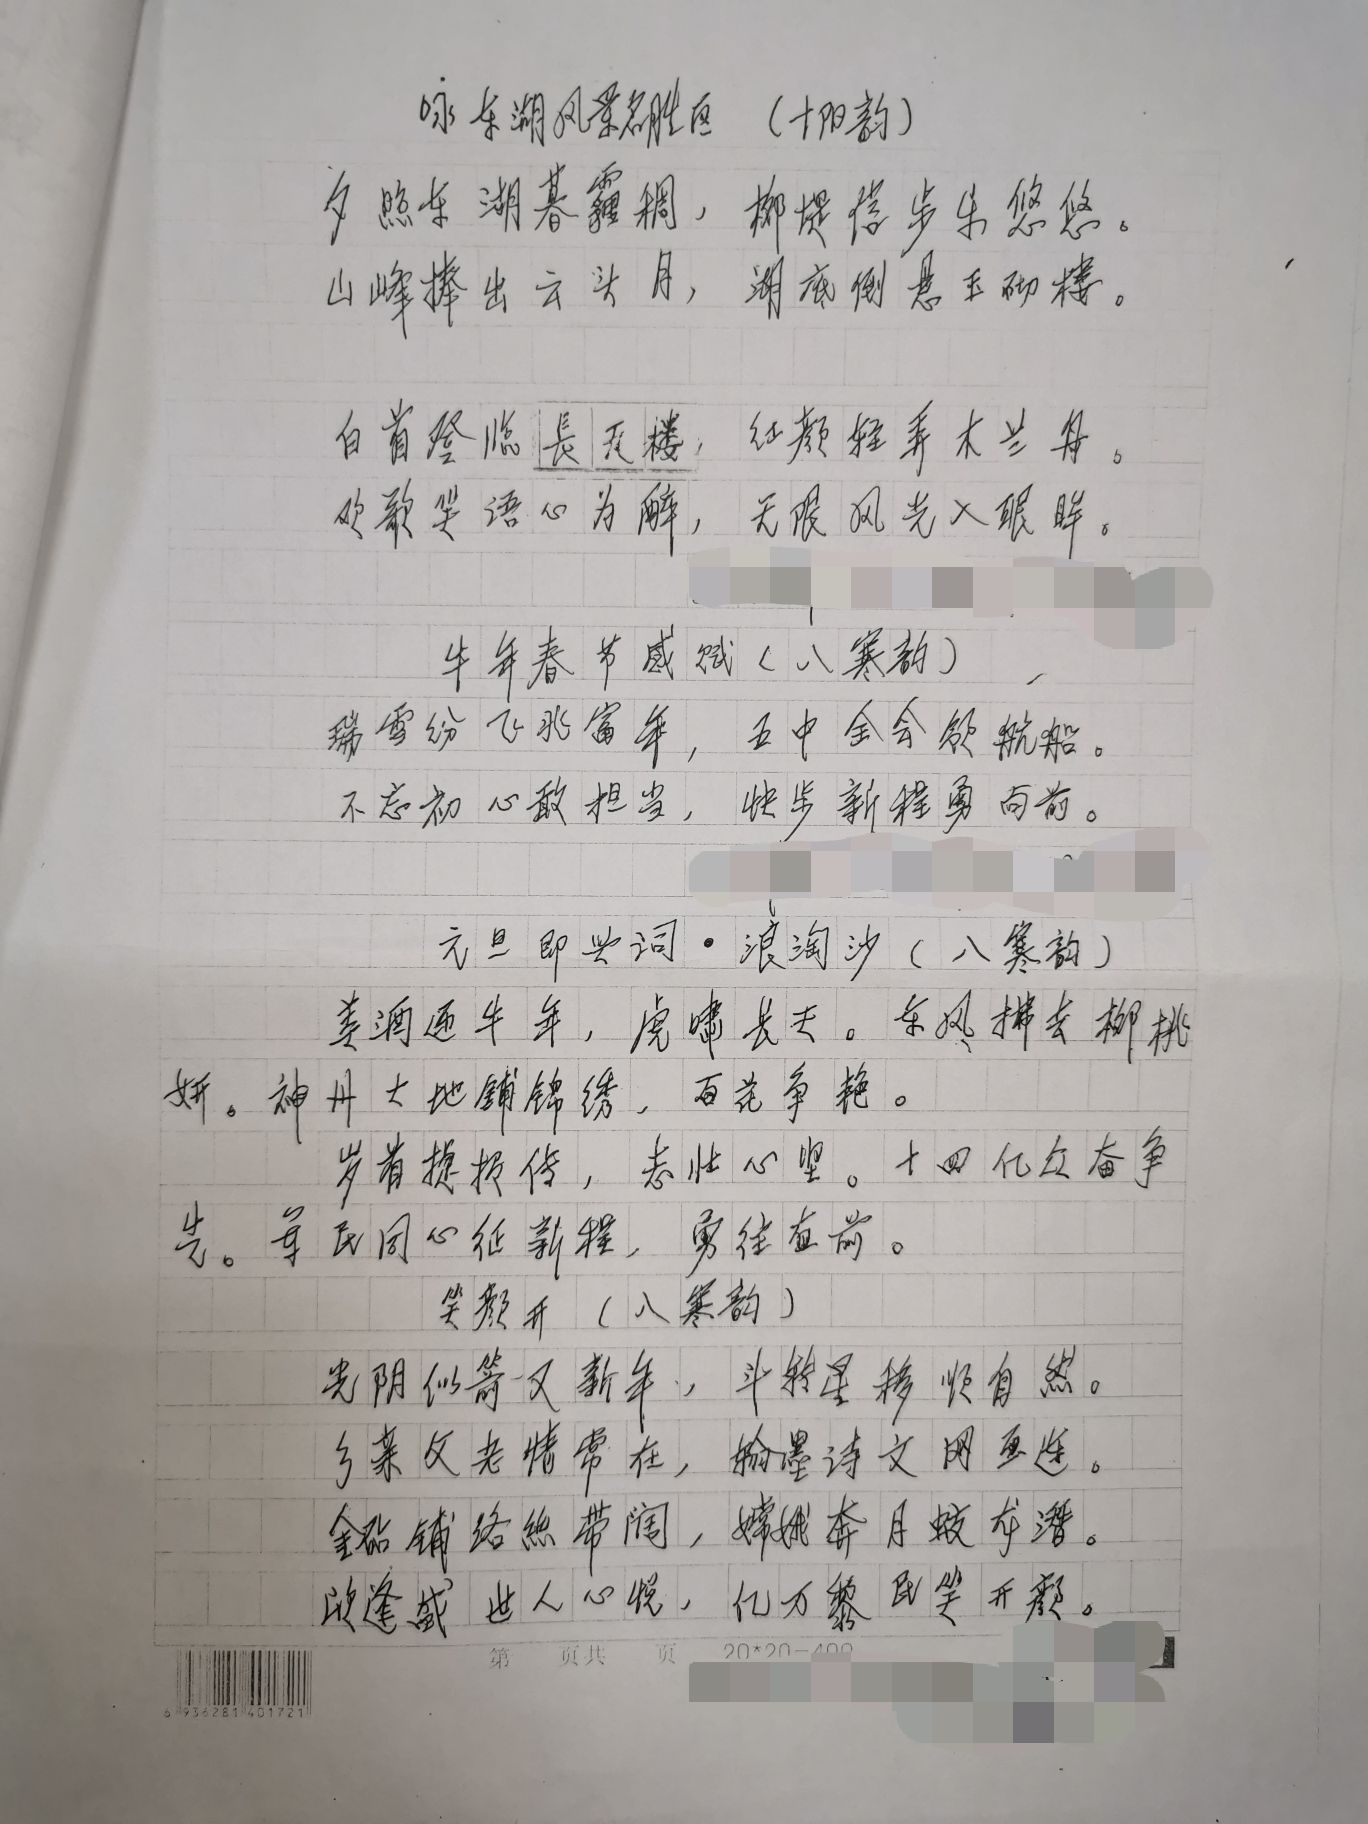 咏东湖风景名胜区 (十阳韵)
夕照东湖暮霾稠,柳堤信步乐悠悠。
山峰捧出云头月,湖底倒悬玉砌楼。
白首登临長天楼,红颜轻弄木兰舟。
欢歌笑语心为醉,无限风光入眼眸。
牛年春节感赋(八寒韵)
瑞雪纷飞兆富年,五中全会领航船。
不忘初心敢担当,快步新程勇向前。
元旦即兴词·浪淘沙(八寒韵)
美酒迎牛年,虎啸长天。东风拂去柳桃
妍。神舟大地铺锦绣,百花争艳。
岁首捷报传,志壮心坚。十四亿众奋争
先。军民同心征新程,勇往直前。
笑颜开(八寒韵)
光阴似箭又新年,斗转星移顺自然。
乡亲父老情常在,翰墨诗文网画连。
金砖铺路丝带阔,嫦娥奔月蛟龙潜。
欣逢盛世人心悦,亿万黎民笑开颜。
第 页共 页 20*20=400
6 936281 401721